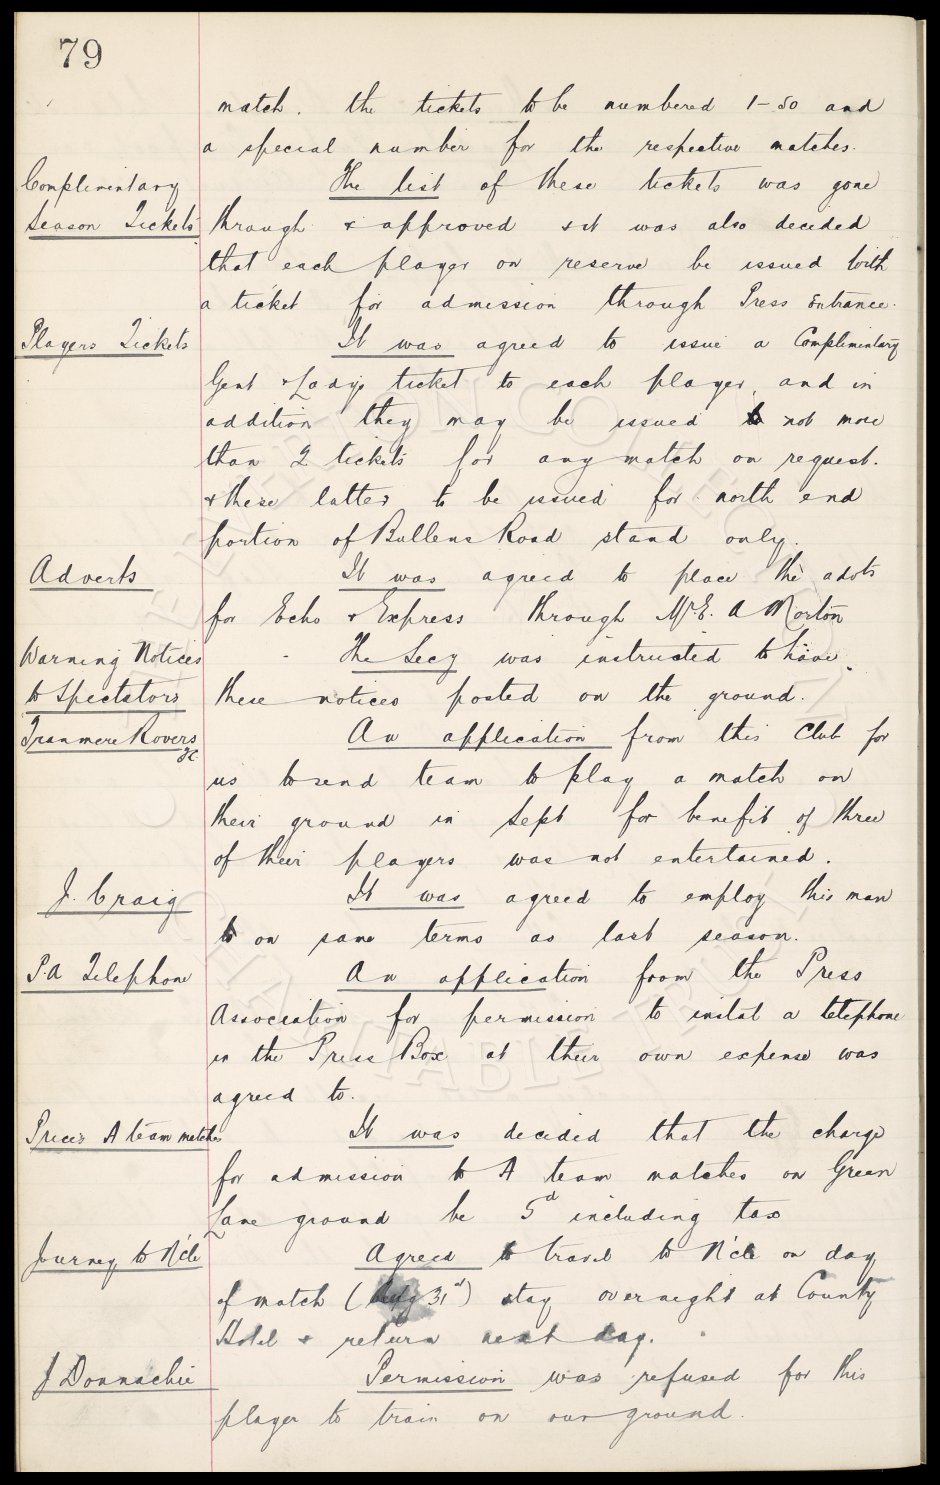 79
match. the tickets to be numbered 1-50 and
a special number for the respective matches.
Complimentary
Season Tickets
The list of these tickets was gone
through & approved & it was also decided
that each player on reserve be issued with
a ticket for admission through Press Entrance.
Players Tickets
It was agreed to issue a Complimentary
Gent & Lady's ticket to each player, and in
addition they may be issued to not more
than 2 tickets for any match on request.
& these latter to be issued for north end
portion of Bullens Road stand only.
Adverts
It was agreed to place the advts
for Echo & Express through Mr. E. A Morton
Warning Notices
to Spectators
The Secy was instructed to have
these notices posted on the ground.
Tranmere Rovers
FC
An application from this Club for
us to send team to play a match on
their ground in Sept for benefit of three
of their players was not entertained.
J. Craig
It was agreed to employ this man
to on same terms as last season.
P.A Telephone
An application from the Press
Association for permission to instal a telephone
in the Press Box at their own expense was
agreed to.
Prices A team matches
It was decided that the charge
for admission to A team matches on Green
Lane ground be 5d including tax
Journey to N'cle
Agreed to travel to N'cle on day
of match (Aug 31st) stay overnight at County
Hotel & return next day.
J Donnachie
Permission was refused for this
player to train on our ground.
EVERTON COLLECTION
CHARITABLE TRUST